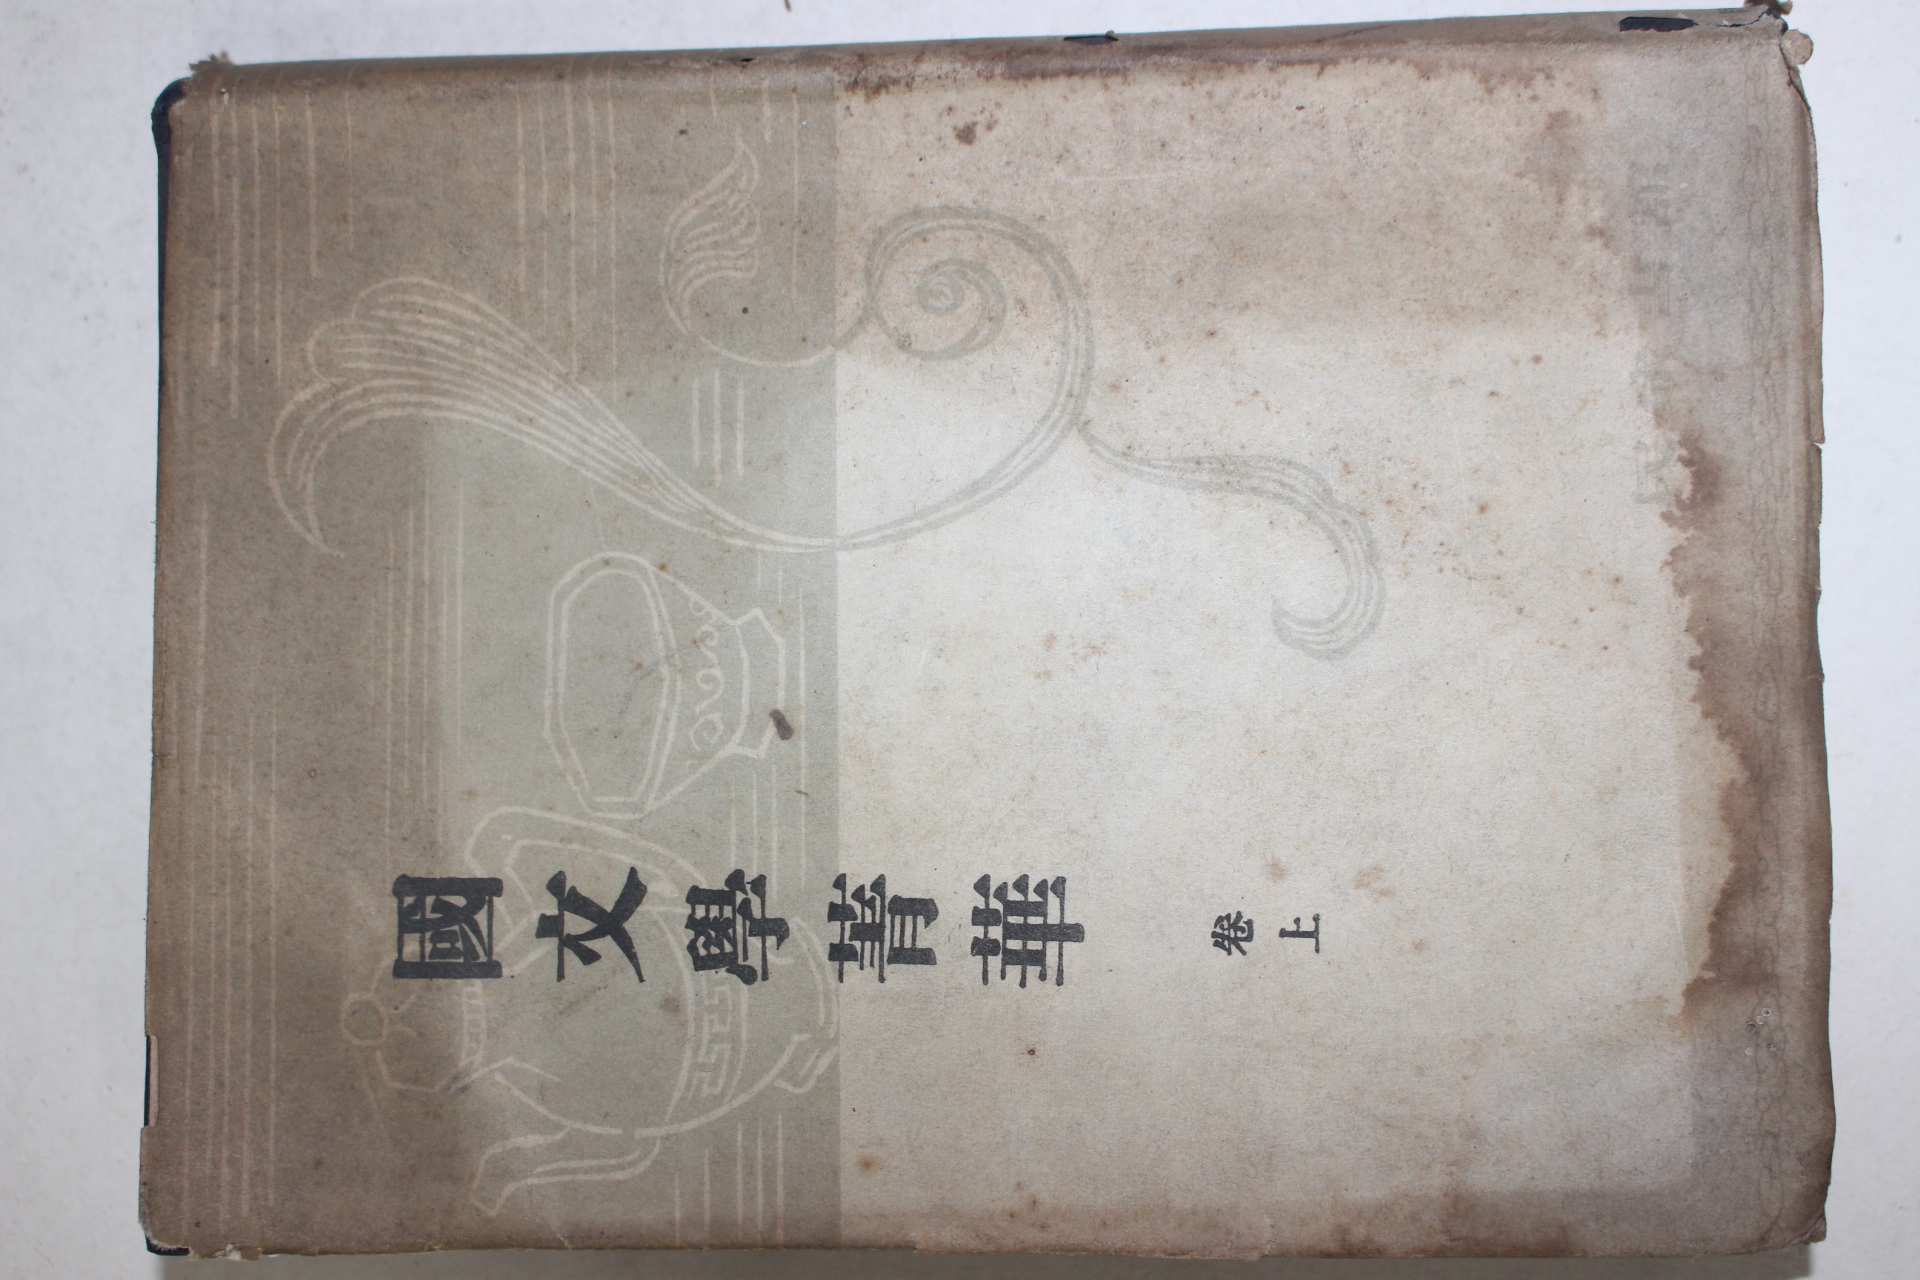 國文學菁華
卷上